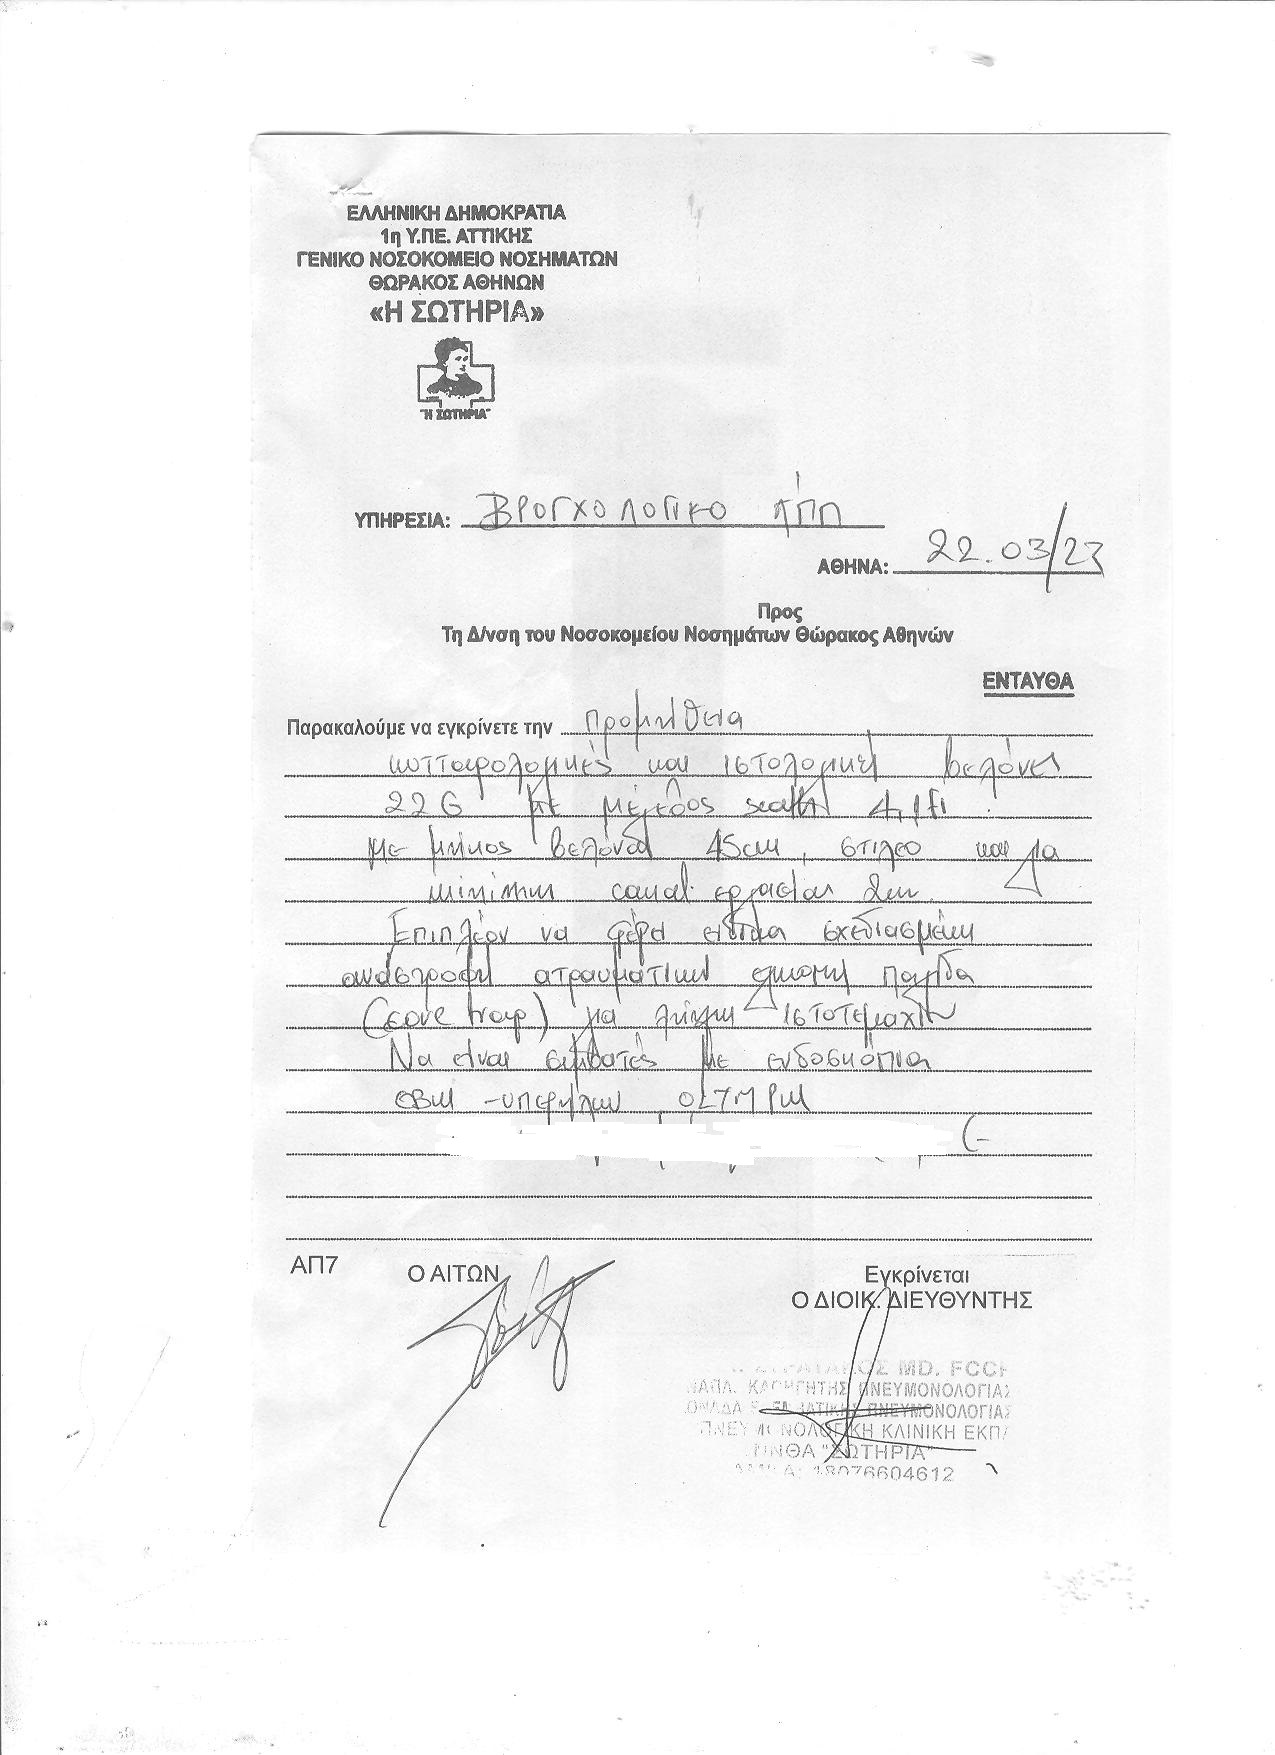 ΕΛΛΗΝΙΚΗ ΔΗΜΟΚΡΑΤΙΑ
1η Υ.ΠΕ. ΑΤΤΙΚΗΣ
ΓΕΝΙΚΟ ΝΟΣΟΚΟΜΕΙΟ ΝΟΣΗΜΑΤΩΝ
ΘΩΡΑΚΟΣ ΑΘΗΝΩΝ
«Η ΣΩΤΗΡΙΑ»
"Η ΣΩΤΗΡΙΑ"
ΥΠΗΡΕΣΙΑ: ΒΡΟΓΧΟΛΟΓΙΚΟ
ΑΘΗΝΑ: 22.03/23
Προς
Τη Δ/νση του Νοσοκομείου Νοσημάτων Θώρακος Αθηνών
ΕΝΤΑΥΘΑ
Παρακαλούμε να εγκρίνετε την προμήθεια
κυτταρολογικής και ιστολογική βελόνες
22G με μέγεθος 4,1fr
με μήκος βελόνας 45cm, στιλεο και για
minimum canal εργασίας
Επιπλέον να φέρει ειδικα σχεδιασμένη
αναστροφη ατραυματικη παγιδα
(core trap) για λήψη ιστοτεμαχιων
Να είναι συμβατές με ενδοσκόπια
υπερήχων OLYMPUS
ΑΠ7
Ο ΑΙΤΩΝ
Εγκρίνεται
Ο ΔΙΟΙΚ. ΔΙΕΥΘΥΝΤΗΣ
MD. FCCP
ΚΑΘΗΓΗΤΗΣ ΠΝΕΥΜΟΝΟΛΟΓΙΑΣ
ΠΝΕΥΜΟΝΟΛΟΓΙΑΣ
ΠΝΕΥΜΟΝΟΛΟΓΙΚΗ ΚΛΙΝΙΚΗ ΕΚΠΑ
"ΣΩΤΗΡΙΑ"
18076604612